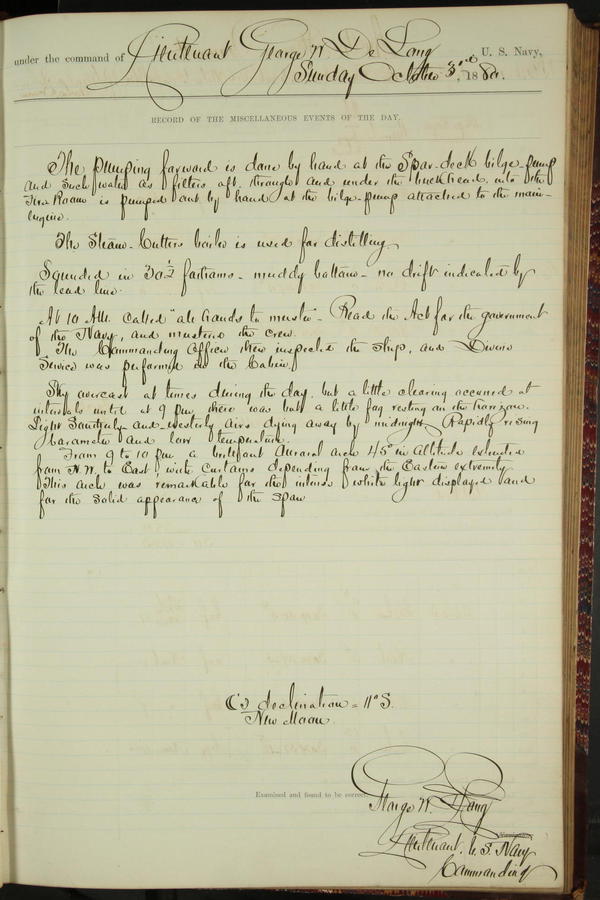 under the command of Lieutenant George W. De Long, U. S. Navy,
Sunday October 3rd, 1880.
RECORD OF THE MISCELLANEOUS EVENTS OF THE DAY.
The pumping forward is done by hand at the Spar-deck bilge-pump
and such water as filters aft through and under the bulkhead into the
Fire Room is pumped out by hand at the bilge-pump attached to the main-
engine.
The Steam-Cutters boiler is used for distilling.
Sounded in 30½ fathoms - muddy bottom - no drift indicated by
the lead line.
At 10 AM. called "all hands to muster" - Read the Act for the government
of the Navy, and mustered the crew.
The Commanding Officer then inspected the ship, and Divine
Service was performed in the Cabin.
Sky overcast at times during the day, but a little clearing occurred at
intervals until at 9 pm there was but a little fog resting on the horizon.
Light Southerly and westerly airs dying away by midnight. Rapidly rising
barometer and low temperature.
From 9 to 10 pm a brilliant Auroral arch 45° in Altitude extended
from N.W. to East, with curtains depending from the Eastern extremity.
This arch was remarkable for the intense white light displayed and
for the solid appearance of the
☾'s declination = 11° S.
New Moon.
Examined and found to be correct.
George W. De Long
Lieutenant. U. S. Navy
Commanding